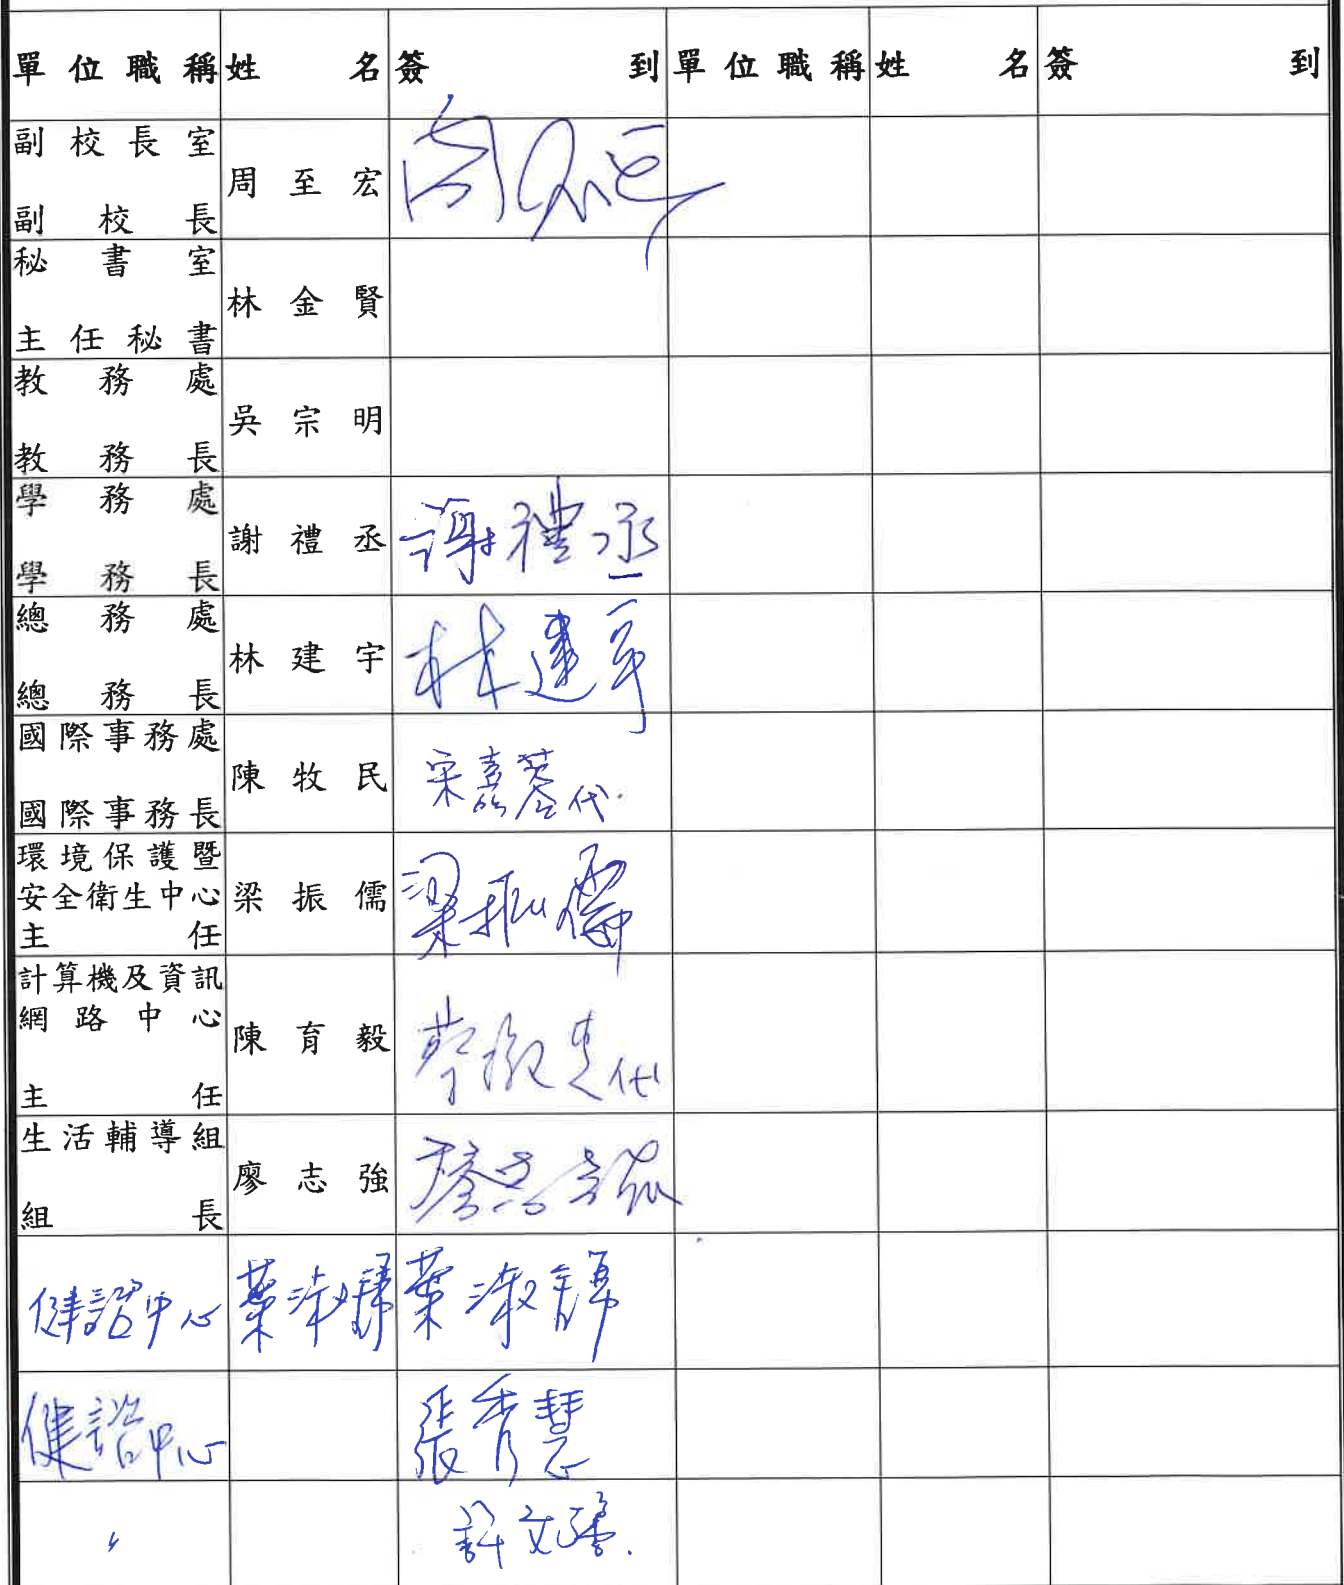 單位職稱 姓名 簽到 單位職稱 姓名 簽到
副校長室
副校長
周至宏
秘書室
主任秘書
林金賢
教務處
教務長
吳宗明
學務處
學務長
謝禮丞 謝禮丞
總務處
總務長
林建宇 林建宇
國際事務處
國際事務長
陳牧民 宋嘉蓉代
環境保護暨
安全衛生中心
主任
梁振儒 梁振儒
計算機及資訊
網路中心
主任
陳育毅
生活輔導組
組長
廖志強 廖志強
健諮中心 葉淑
葉淑
健諮中心 張秀慧
〃 許文